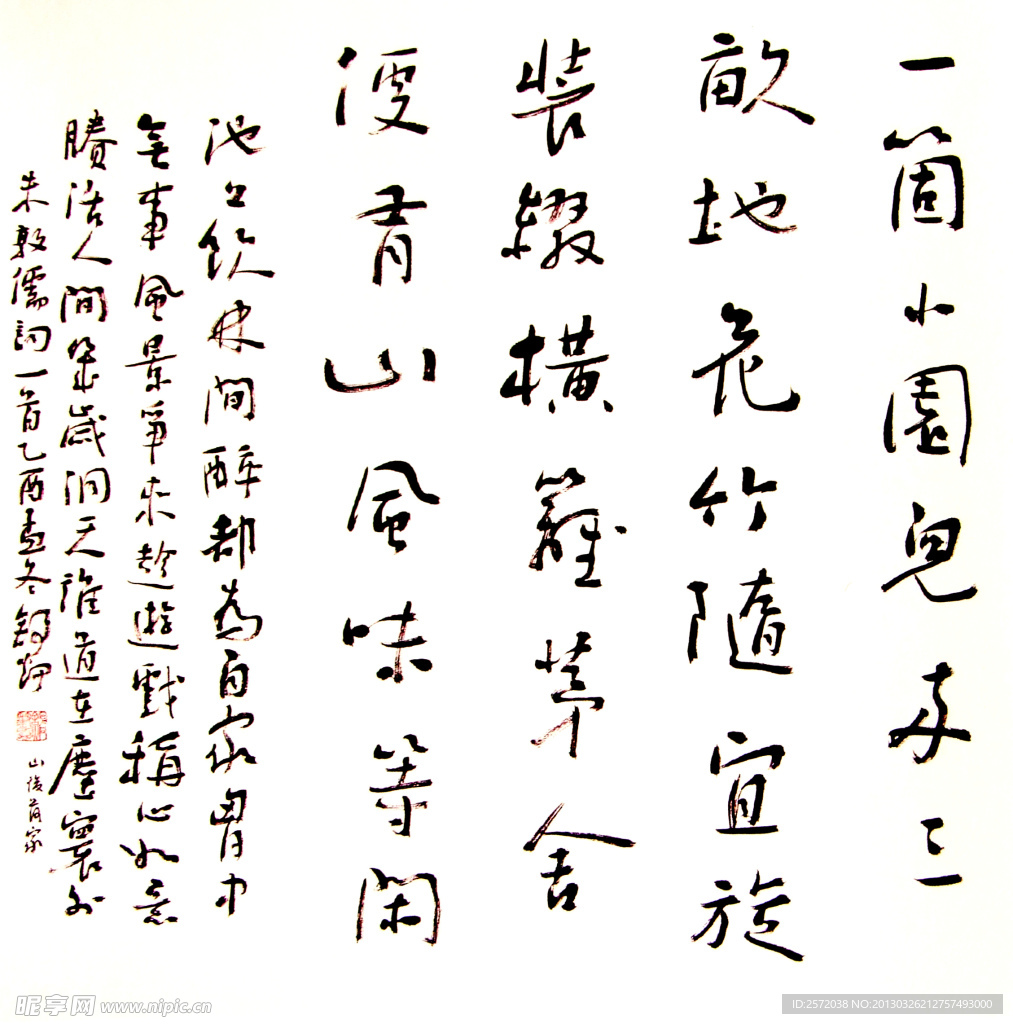 一箇小園兒兩三
畝地花竹隨宜旋
裝綴橫籬茅舍
便有山風味等閑
池上飲林間醉都為自家胷中
無事風景爭來趁遊戲稱心如意
賸活人間幾歲洞天誰道在塵寰外
朱敦儒詞一首乙酉孟冬
山後家
昵享网 www.nipic.cn
ID:2572038 NO:20130326212757493000